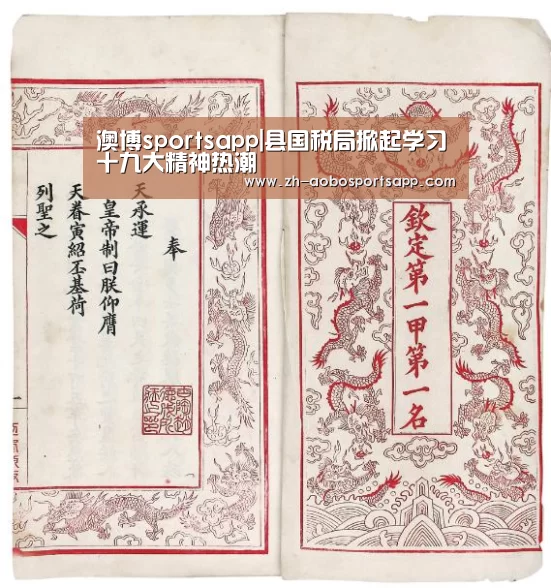 澳博sportsapp|县国税局掀起学习
十九大精神热潮
www.zh-aobosportsapp.com
欽定第一甲第一名
奉
天承運
皇帝制曰朕仰膺
天眷寅紹丕基荷
列聖之